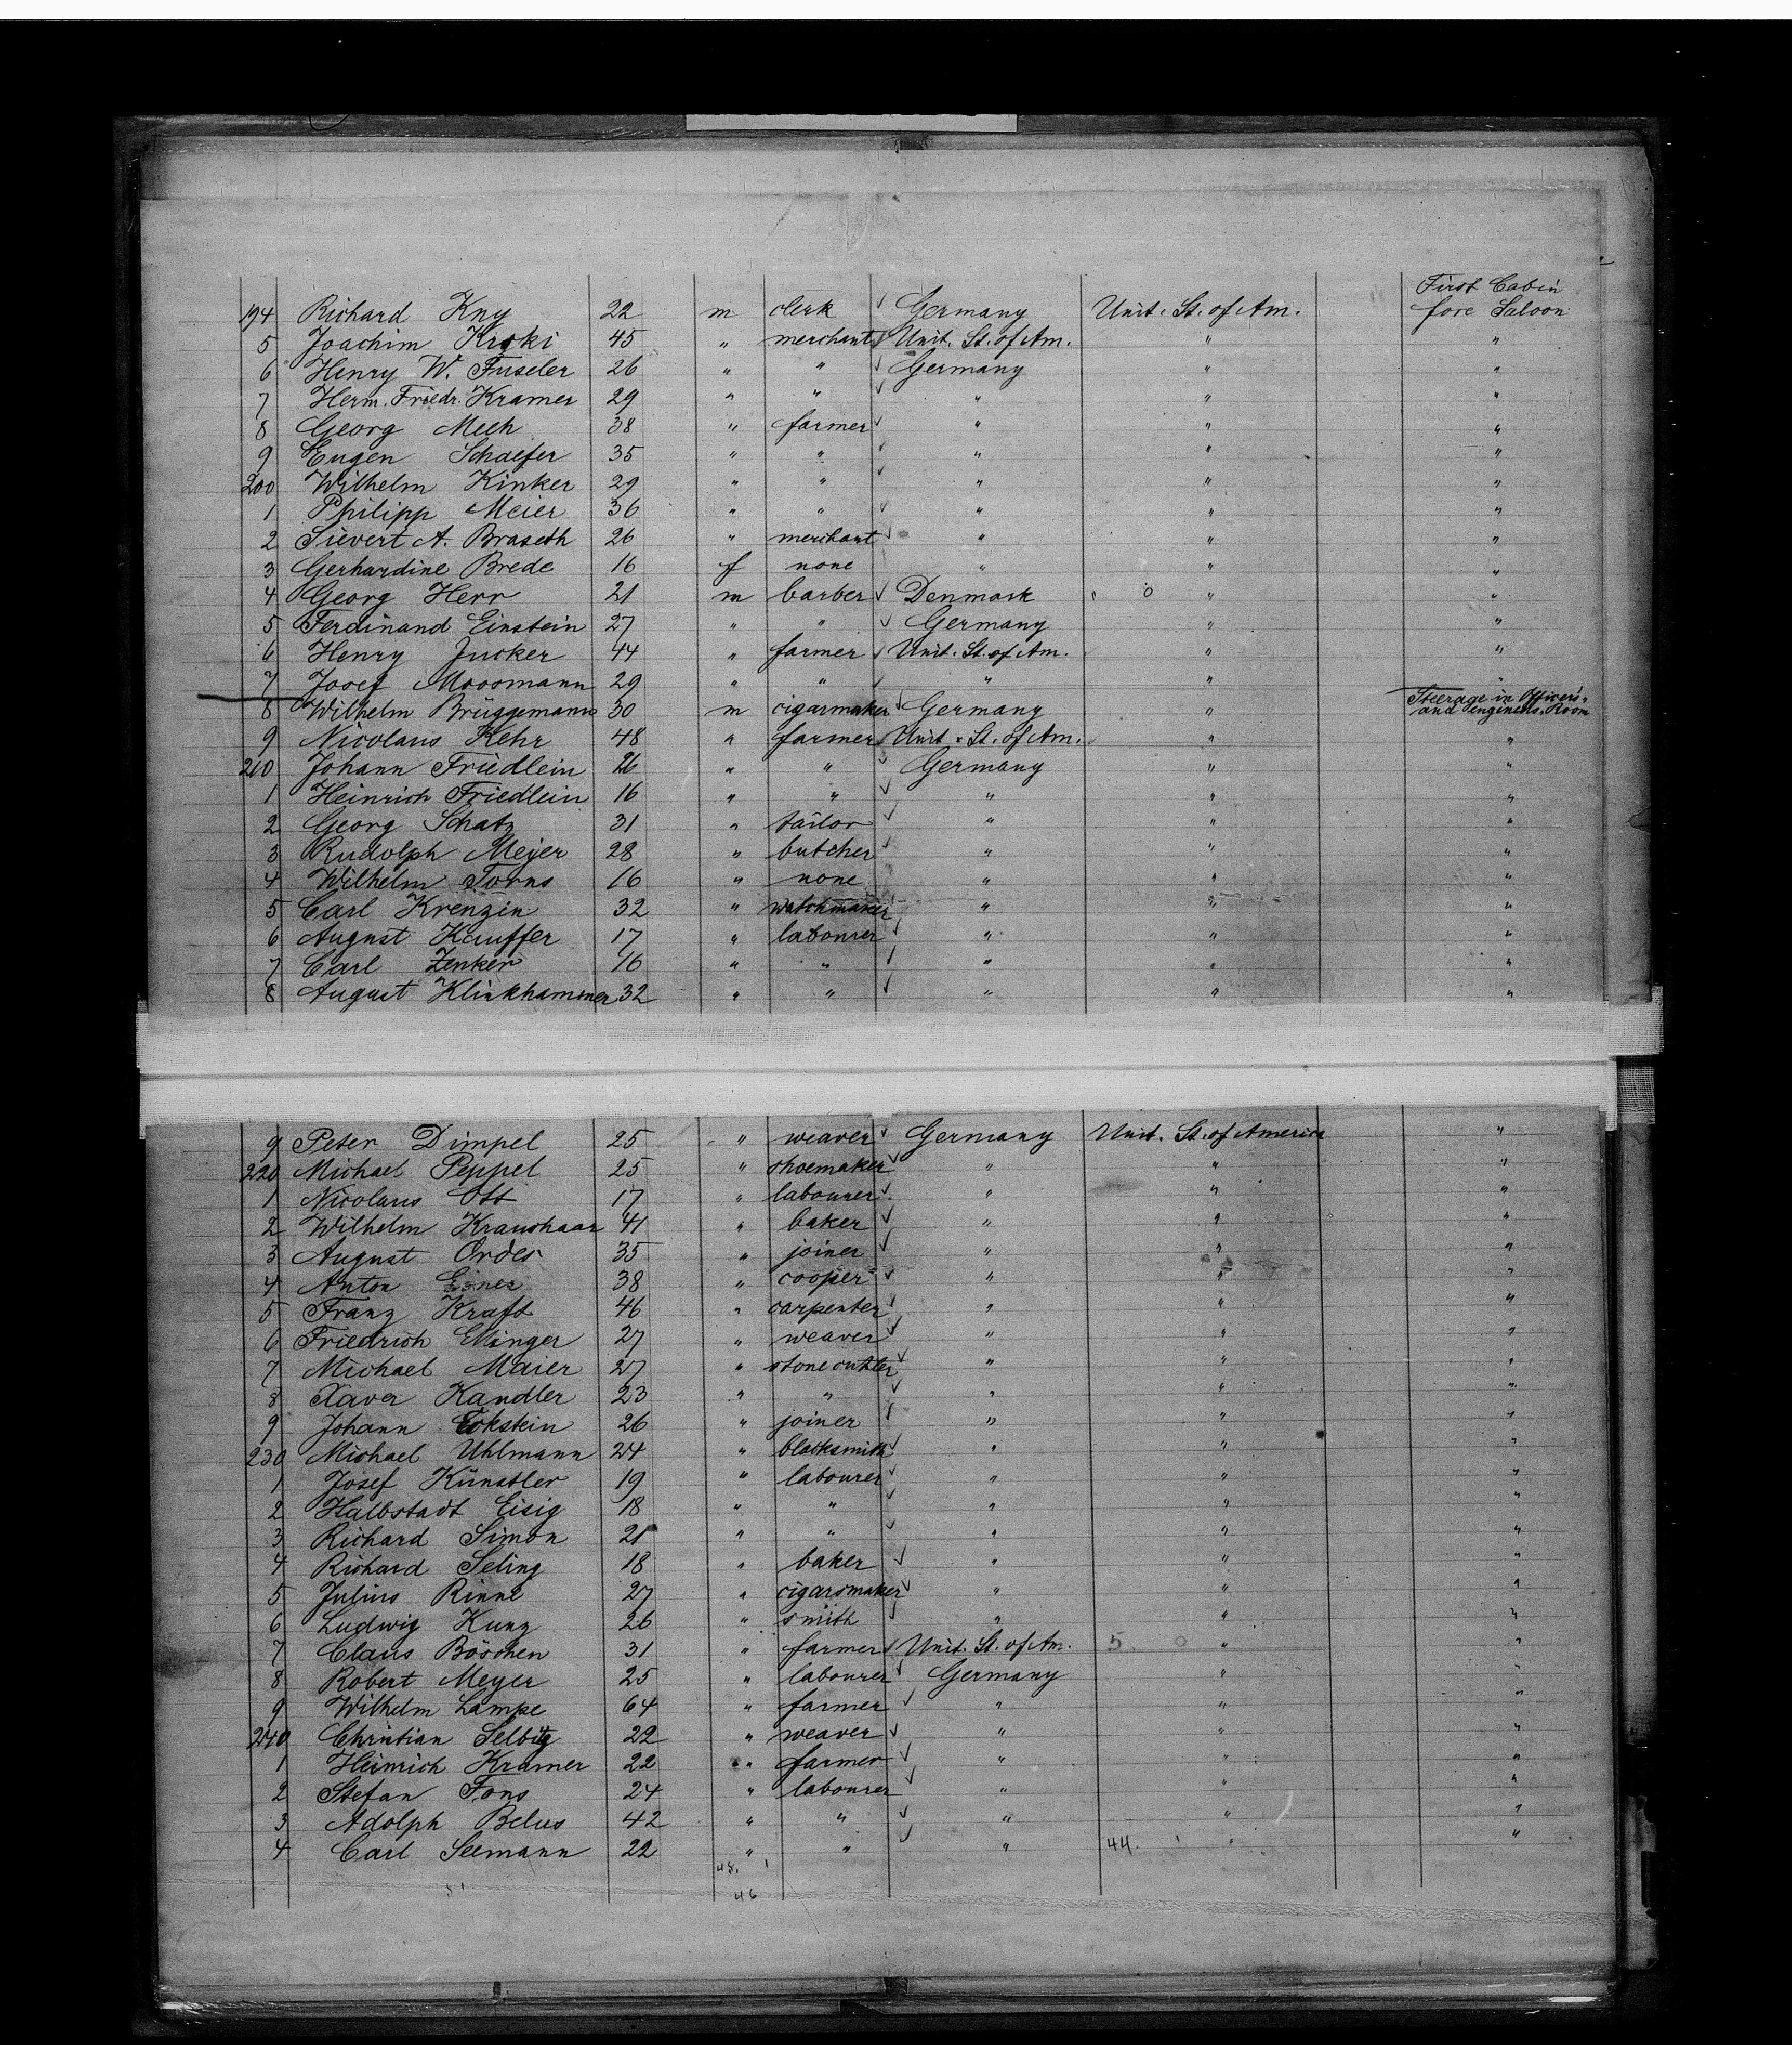 First Cabin
194 Richard Kny 22 m clerk ✓ Germany Unit. St. of Am. fore Saloon
5 Joachim Kroki 45 " merchant ✓ Unit. St. of Am. " "
6 Henry W. Fuseler 26 " " ✓ Germany " "
7 Herm. Friedr. Kramer 29 " " ✓ " " "
8 Georg Mech 38 " farmer ✓ " " "
9 Eugen Schaefer 35 " " ✓ " " "
200 Wilhelm Kinker 29 " " ✓ " " "
1 Philipp Meier 36 " " ✓ " " "
2 Sievert A. Braseth 26 " merchant ✓ " " "
3 Gerhardine Brede 16 f none " " "
4 Georg Herr 21 m barber ✓ Denmark " 0 " "
5 Ferdinand Einstein 27 " " ✓ Germany " "
6 Henry Jucker 44 " farmer ✓ Unit. St. of Am. " "
7 Josef Moosmann 29 " " ✓ " " "
Steerage in Officers-
8 Wilhelm Brüggemann 30 m cigarmaker ✓ Germany " and Engineers Room
9 Nicolaus Kehr 48 " farmer ✓ Unit. St. of Am. " "
210 Johann Friedlein 26 " " ✓ Germany " "
1 Heinrich Friedlein 16 " " ✓ " " "
2 Georg Schatz 31 " tailor ✓ " " "
3 Rudolph Meyer 28 " butcher ✓ " " "
4 Wilhelm Torns 16 " none " " "
5 Carl Krenzin 32 " watchmaker ✓ " " "
6 August Kauffer 17 " labourer ✓ " " "
7 Carl Zenker 16 " " ✓ " " "
8 August Klinkhammer 32 " " ✓ " " "
9 Peter Dimpel 25 " weaver ✓ Germany Unit. St. of America "
220 Michael Peppel 25 " shoemaker ✓ " " "
1 Nicolaus Ott 17 " labourer ✓ " " "
2 Wilhelm Kraushaar 41 " baker ✓ " " "
3 August Ordes 35 " joiner ✓ " " "
4 Anton 38 " cooper ✓ " " "
5 Franz Kraft 46 " carpenter ✓ " " "
6 Friedrich Ellinger 27 " weaver ✓ " " "
7 Michael Maier 27 " stonecutter ✓ " " "
8 Xaver Kandler 23 " " ✓ " " "
9 Johann Eckstein 26 " joiner ✓ " " "
230 Michael Uhlmann 24 " blacksmith ✓ " " "
1 Josef Künstler 19 " labourer ✓ " " "
2 Halbstadt Eisig 18 " " ✓ " " "
3 Richard Simon 21 " " ✓ " " "
4 Richard Seling 18 " baker ✓ " " "
5 Julius Rinne 27 " cigarsmaker ✓ " " "
6 Ludwig Kunz 26 " smith ✓ " " "
7 Claus Böschen 31 " farmer ✓ Unit. St. of Am. 5 0 " "
8 Robert Meyer 25 " labourer ✓ Germany " "
9 Wilhelm Lampe 64 " farmer ✓ " " "
240 Christian Selbitz 22 " weaver ✓ " " "
1 Heinrich Kramer 22 " farmer ✓ " " "
2 Stefan Fons 24 " labourer ✓ " " "
3 Adolph Belus 42 " " ✓ " " "
4 Carl Seemann 22 " " ✓ " 44. " "
48. 1
51 46